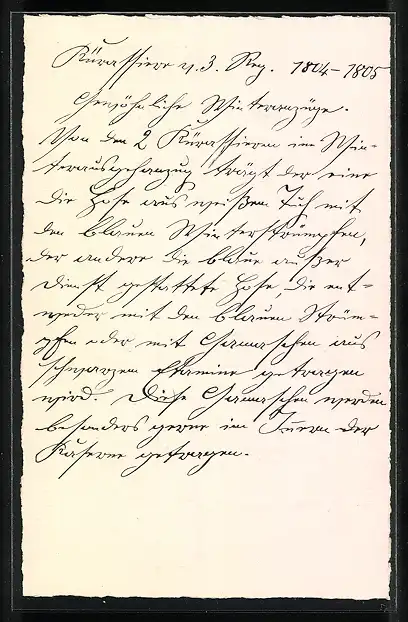 Kürassiere v. 3. Reg. 1804-1805
Gewöhnliche Winteranzüge.
Von den 2 Kürassieren im Win-
terausgehanzug trägt der eine
die Hose aus weißem Tuch mit
den blauen Winterstrümpfen,
der andere die blaue außer
Dienst gestattete Hose, die ent-
weder mit den blauen Strüm-
pfen oder mit Gamaschen aus
schwarzem Etamine getragen
wird. Diese Gamaschen werden
besonders gerne im Innern der
Kaserne getragen.